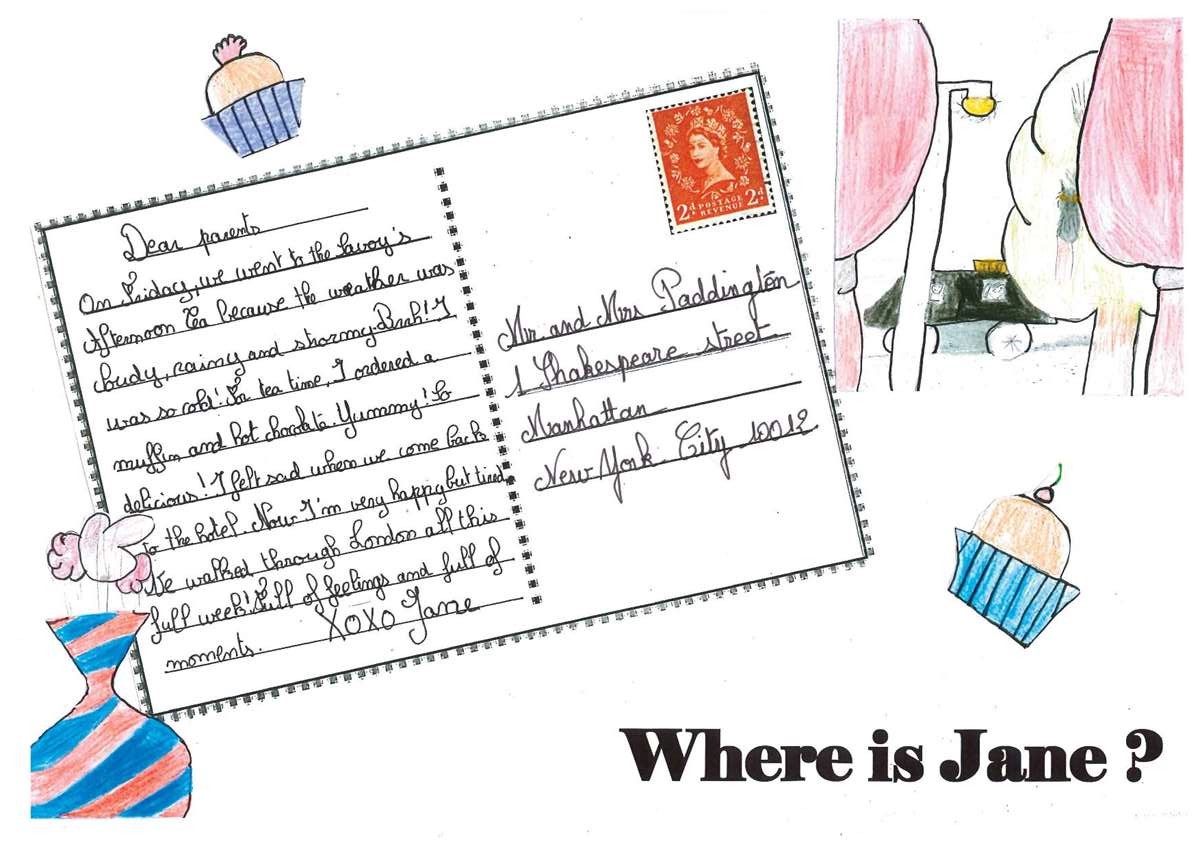 Dear parents
On Friday, we went to the Savoy's
Afternoon Tea because the weather was
cludy, rainy and stormy. Brrh! I
was so cold! For tea time, I ordered a
muffin and hot chocolate. Yummy! So
delicious! I felt sad when we come back
to the hotel. Now I'm very happy but tired
We walked through London all this
full week! Full of feelings and full of
moments. XOXO Jane
2d POSTAGE REVENUE 2d
Mr and Mrs Paddington
1 Shakespeare street
Manhattan
New York City 10012
Where is Jane ?